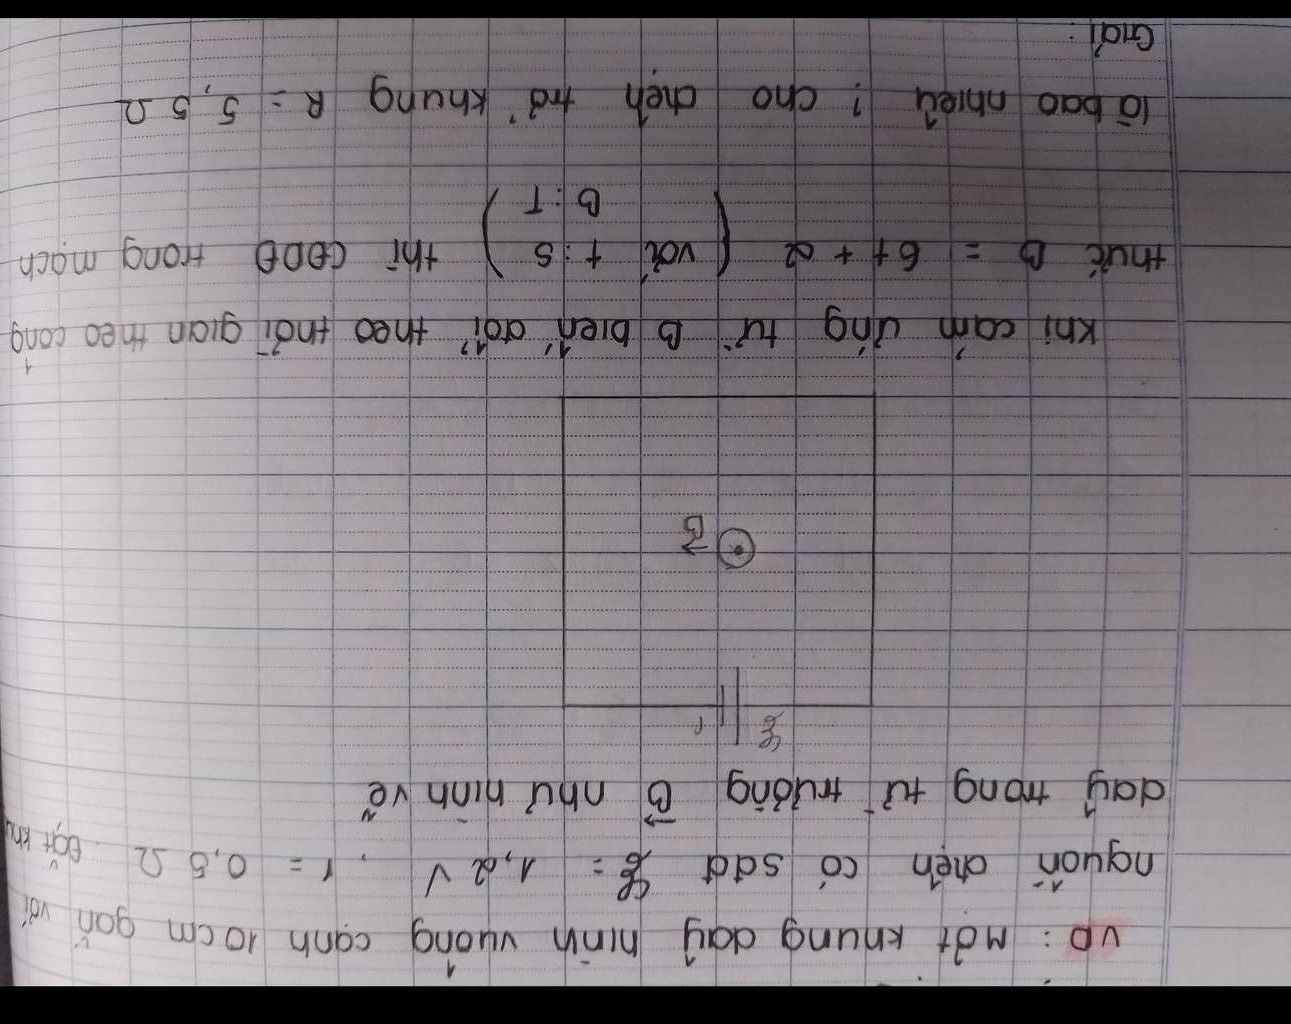 VD : Một khung dây hình vuông cạnh 10 cm gắn với
nguồn điện có sđđ ℰ = 1,2 V , r = 0,5 Ω . Đặt khu
dây trong từ trường B⃗ như hình vẽ
ℰ r
B⃗
khi cảm ứng từ B biến đổi theo thời gian theo công
thức B = 6t + 2 ( với t : s ) thì CĐDĐ trong mạch
B : T
là bao nhiêu ? cho điện trở khung R = 5,5 Ω
Giải :